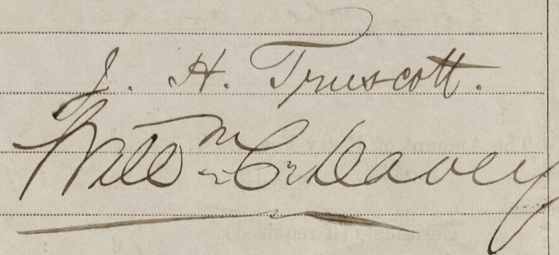 J. H. Truscott.
Will m C. Davey